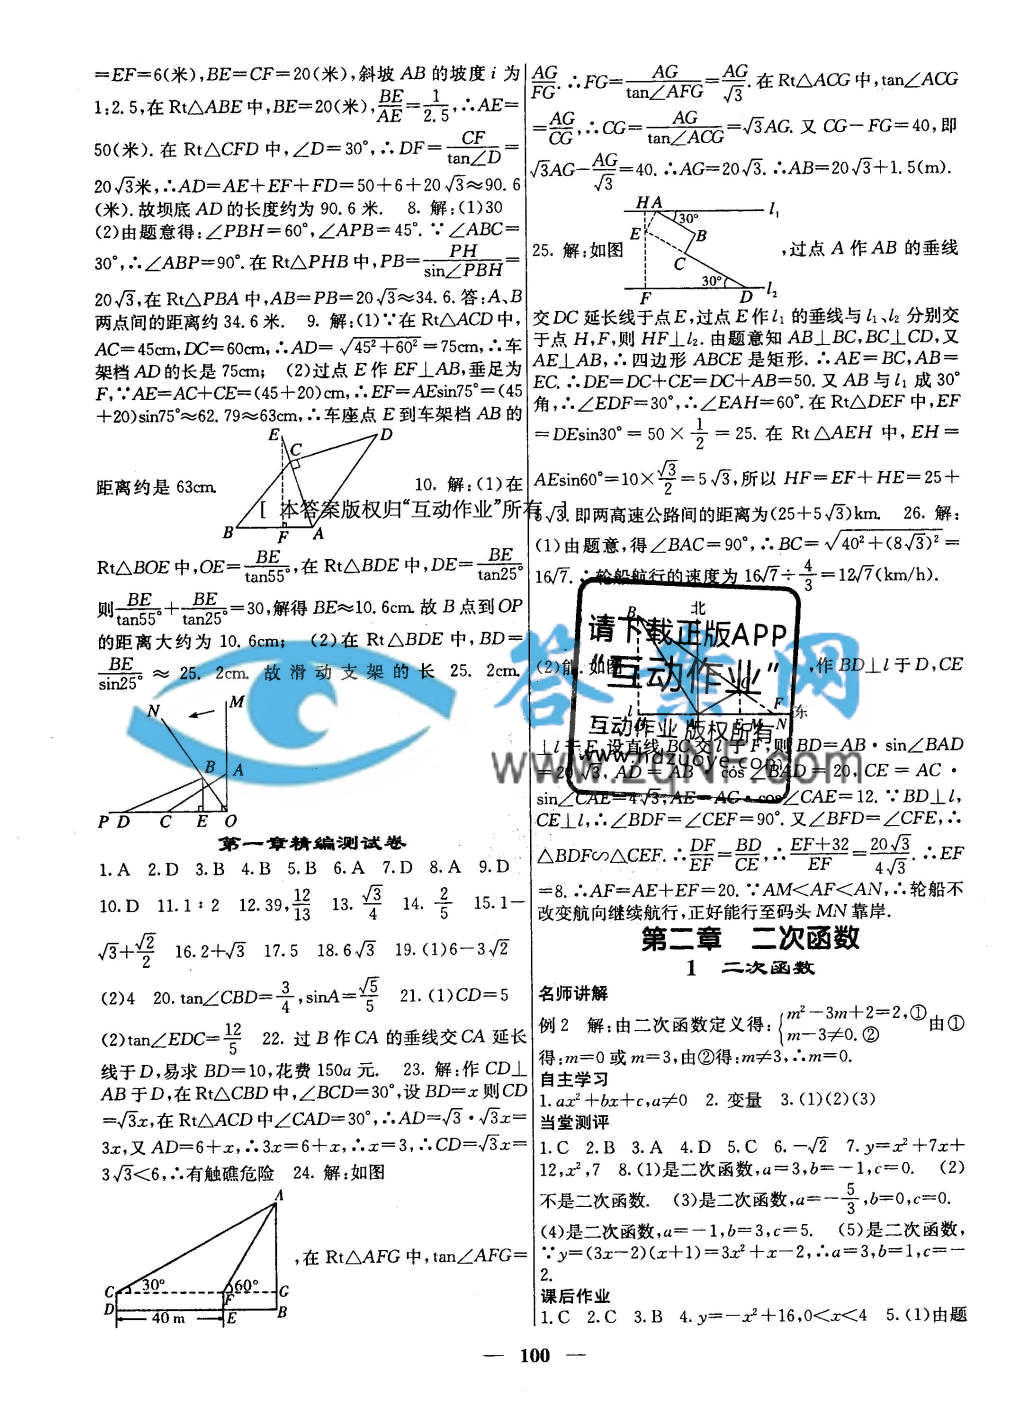 =EF=6(米),BE=CF=20(米),斜坡 AB 的坡度 i 为
1:2.5,在 Rt△ABE 中,BE=20(米),BE/AE=1/2.5,∴AE=
50(米).在 Rt△CFD 中,∠D=30°,∴DF=CF/tan∠D=
20√3米,∴AD=AE+EF+FD=50+6+20√3≈90.6
(米).故坝底 AD 的长度约为 90.6 米. 8. 解:(1)30
(2)由题意得:∠PBH=60°,∠APB=45°.∵∠ABC=
30°,∴∠ABP=90°.在 Rt△PHB 中,PB=PH/sin∠PBH=
20√3,在 Rt△PBA 中,AB=PB=20√3≈34.6.答:A、B
两点间的距离约 34.6 米. 9. 解:(1)∵在 Rt△ACD 中,
AC=45cm,DC=60cm,∴AD=√(45²+60²)=75cm,∴车
架档 AD 的长是 75cm; (2)过点 E 作 EF⊥AB,垂足为
F,∵AE=AC+CE=(45+20)cm,∴EF=AEsin75°=(45
+20)sin75°≈62.79≈63cm,∴车座点 E 到车架档 AB 的
E D
C
距离约是 63cm. 10. 解:(1)在
[ 本答案版权归“互动作业”所有 ]
B F A
Rt△BOE 中,OE=BE/tan55°,在 Rt△BDE 中,DE=BE/tan25°
则BE/tan55°+BE/tan25°=30,解得 BE≈10.6cm.故 B 点到 OP
的距离大约为 10.6cm; (2)在 Rt△BDE 中,BD=
BE/sin25°≈25.2cm.故滑动支架的长 25.2cm.
N M
B A
P D C E O
第一章精编测试卷
1.A 2.D 3.B 4.B 5.B 6.A 7.D 8.A 9.D
10.D 11.1:2 12.39,12/13 13.√3/4 14.2/5 15.1-
√3+√2/2 16.2+√3 17.5 18.6√3 19.(1)6-3√2
(2)4 20.tan∠CBD=3/4,sinA=√5/5 21.(1)CD=5
(2)tan∠EDC=12/5 22. 过 B 作 CA 的垂线交 CA 延长
线于 D,易求 BD=10,花费 150a 元. 23. 解:作 CD⊥
AB 于 D,在 Rt△CBD 中,∠BCD=30°,设 BD=x 则 CD
=√3x,在 Rt△ACD 中∠CAD=30°,∴AD=√3·√3x=
3x,又 AD=6+x,∴3x=6+x,∴x=3,∴CD=√3x=
3√3<6,∴有触礁危险 24. 解:如图
A
,在 Rt△AFG 中,tan∠AFG=
C 30° 60° G
D F B
40 m E
AG/FG.∴FG=AG/tan∠AFG=AG/√3.在 Rt△ACG 中,tan∠ACG
=AG/CG,∴CG=AG/tan∠ACG=√3AG.又 CG-FG=40,即
√3AG-AG/√3=40.∴AG=20√3.∴AB=20√3+1.5(m).
H A l₁
30°
E B
25. 解:如图 ,过点 A 作 AB 的垂线
C
30°
F D l₂
交 DC 延长线于点 E,过点 E 作 l₁ 的垂线与 l₁、l₂ 分别交
于点 H,F,则 HF⊥l₂.由题意知 AB⊥BC,BC⊥CD,又
AE⊥AB,∴四边形 ABCE 是矩形.∴AE=BC,AB=
EC.∴DE=DC+CE=DC+AB=50.又 AB 与 l₁ 成 30°
角,∴∠EDF=30°,∴∠EAH=60°.在 Rt△DEF 中,EF
=DEsin30°=50×1/2=25.在 Rt△AEH 中,EH=
AEsin60°=10×√3/2=5√3,所以 HF=EF+HE=25+
5√3.即两高速公路间的距离为(25+5√3)km. 26. 解:
(1)由题意,得∠BAC=90°,∴BC=√(40²+(8√3)²)=
16√7.∴轮船航行的速度为 16√7÷4/3=12√7(km/h).
B 北
请下载正版APP
“互动作业”
(2)能.如图 ,作 BD⊥l 于 D,CE
l F 东
M N
互动作业 版权所有
答案网
www.zqNF.com
⊥l于 E,设直线 BC 交 l 于 F,则 BD=AB·sin∠BAD
=20√3,AD=AB·cos∠BAD=20,CE=AC·
sin∠CAE=4√3,AE=AC·cos∠CAE=12.∵BD⊥l,
CE⊥l,∴∠BDF=∠CEF=90°.又∠BFD=∠CFE,∴
△BDF∽△CEF.∴DF/EF=BD/CE,∴(EF+32)/EF=20√3/4√3.∴EF
=8.∴AF=AE+EF=20.∵AM<AF<AN,∴轮船不
改变航向继续航行,正好能行至码头 MN 靠岸.
第二章 二次函数
1 二次函数
名师讲解
例 2 解:由二次函数定义得:{m²-3m+2=2,① m-3≠0.② 由①
得:m=0 或 m=3,由②得:m≠3,∴m=0.
自主学习
1.ax²+bx+c,a≠0 2. 变量 3.(1)(2)(3)
当堂测评
1.C 2.B 3.A 4.D 5.C 6.-√2 7.y=x²+7x+
12,x²,7 8.(1)是二次函数,a=3,b=-1,c=0. (2)
不是二次函数. (3)是二次函数,a=-5/3,b=0,c=0.
(4)是二次函数,a=-1,b=3,c=5. (5)是二次函数,
∵y=(3x-2)(x+1)=3x²+x-2,∴a=3,b=1,c=-
2.
课后作业
1.C 2.C 3.B 4.y=-x²+16,0<x<4 5.(1)由题
— 100 —